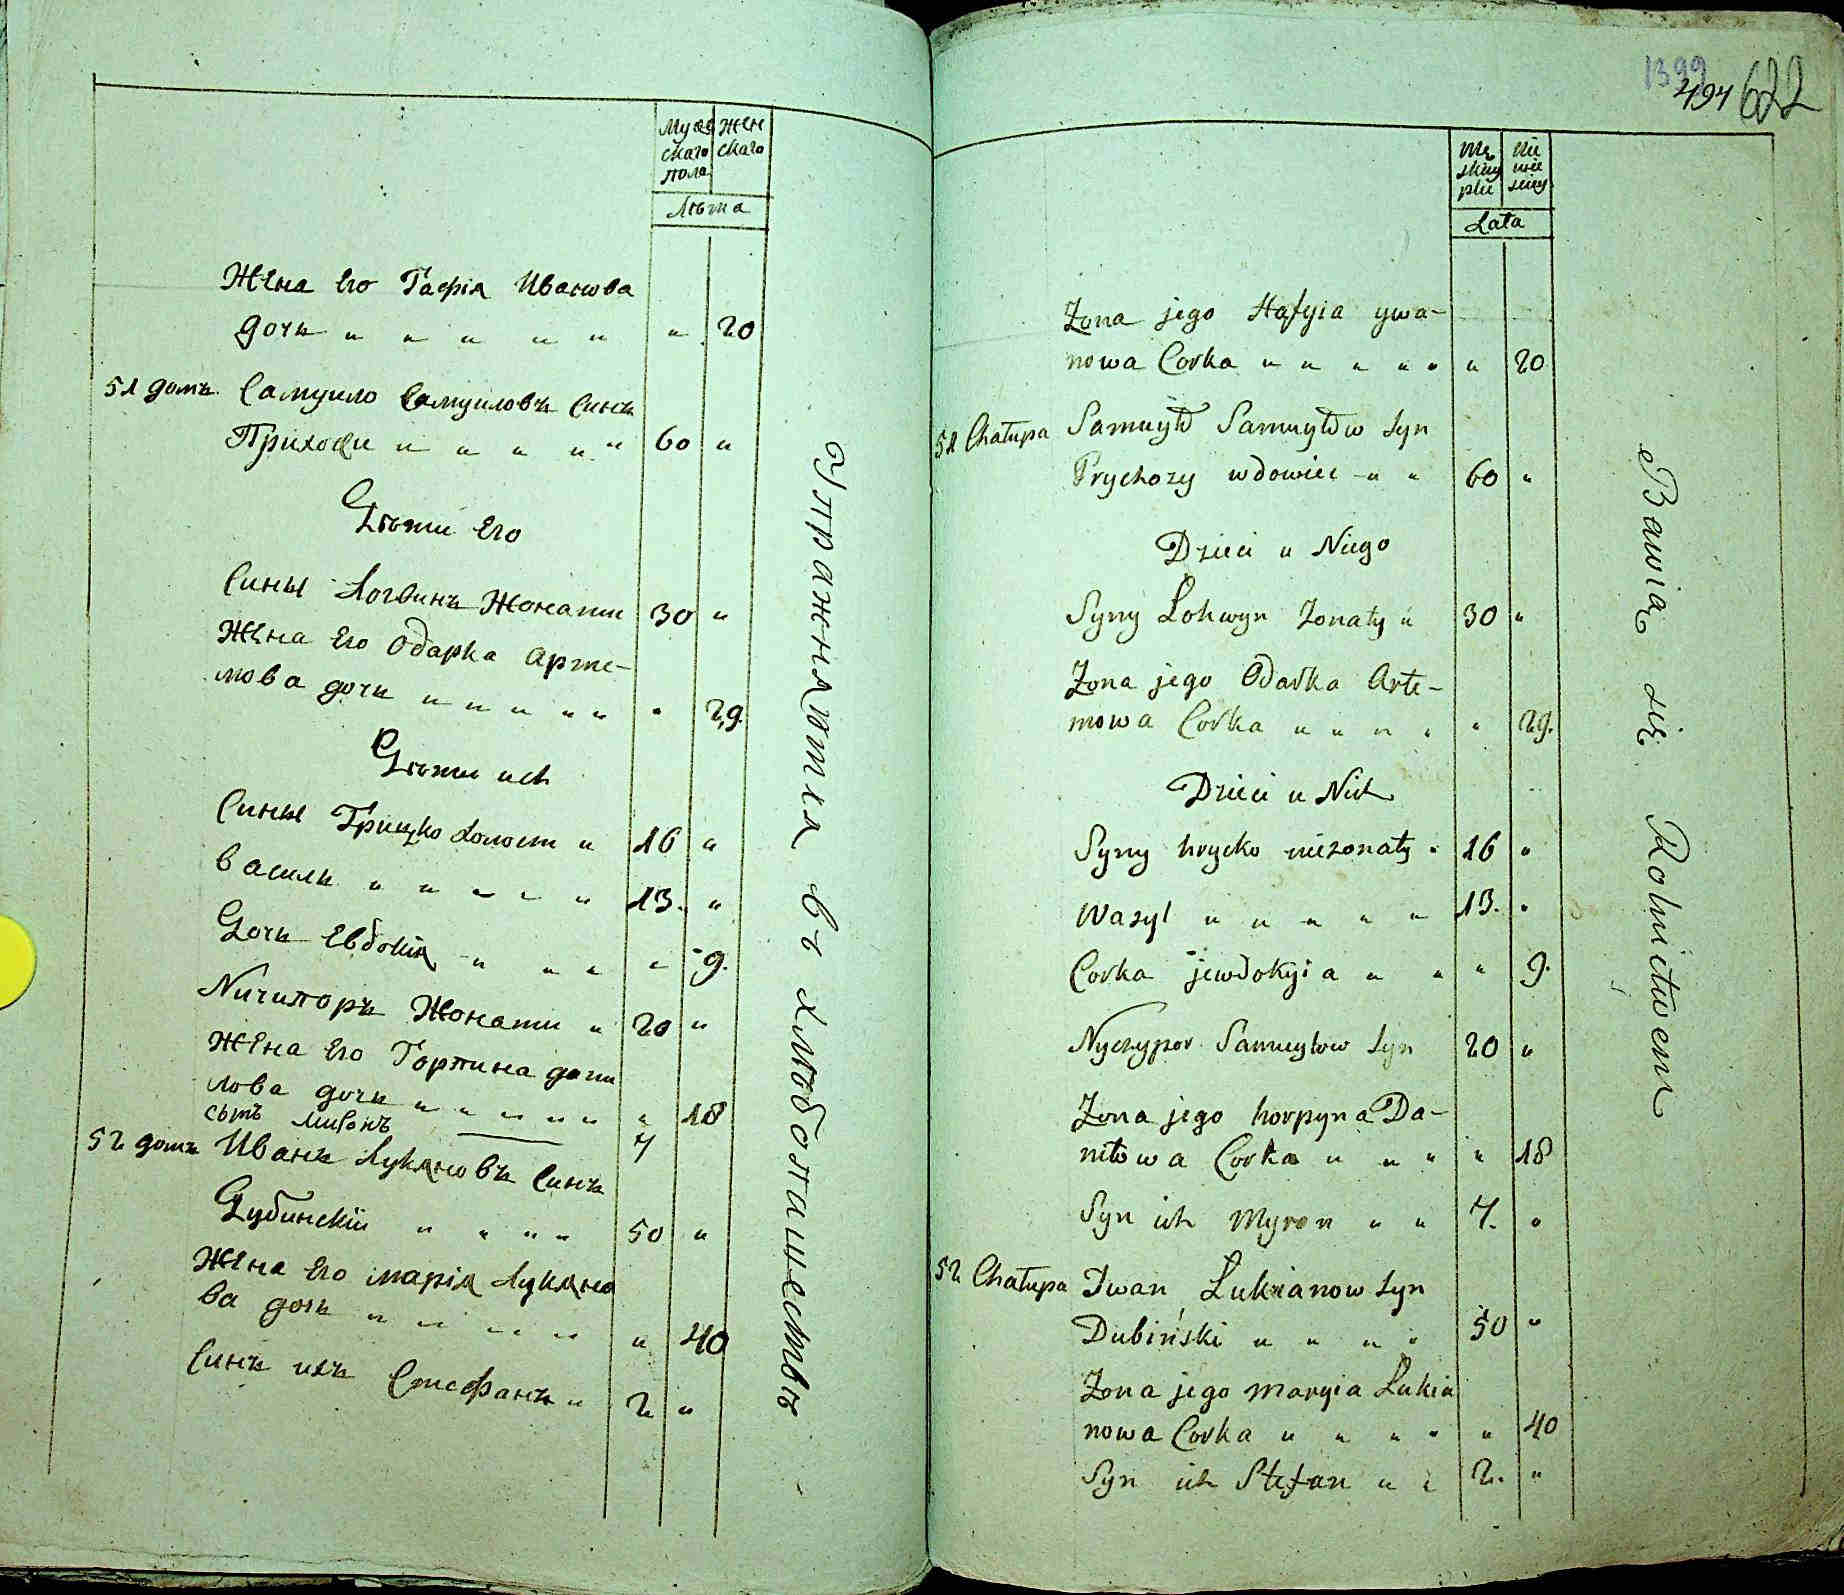 Муже
скаго
пола
Жен
скаго
Лѣта
Жена Его Гафія Иванова
дочь " " " " " " 20
51 домъ Самуило Самуиловъ Синъ
Приходи " " " " " 60 "
Дѣти Его
Сины Логвинъ Жонати 30 "
Жена Его Одарка Арте-
мова дочь " " " " " " 29.
Дѣти ихъ
Сины Грицко холост " 16 "
Василь " " " " " 13. "
Дочь Евдокія " " " " 9.
Ничипоръ Жонати " 20 "
Жена Его Горпина дани
лова дочь " " " " " " 18
сынъ Миронъ 7
52 домъ Иванъ Лукяновъ Синъ
Дубинскій " " " " 50 "
Жена Его Марія Лукяно
ва дочь " " " " " " 40
Синъ ихъ Стефанъ " 2 "
Упражняются въ хлѣбопашествѣ
1399
494 622
Mę
skiey
płci
Nie
wie
sciey
Lata
Zona jego Hafyia ywa-
nowa Corka " " " " " " 20
51 Chałupa Samuyło Samuyłow Syn
Prychozy wdowiec " " 60 "
Dzieci u Niego
Syny Lohwyn Zonaty " 30 "
Zona jego Odarka Arte-
mowa Corka " " " " " 29.
Dzieci u Nich
Syny hrycko niezonaty " 16 "
Wasyl " " " " " 13. "
Corka jewdokyia " " " 9.
Nyczypor Samuyłow Syn 20 "
Zona jego horpyna Da-
niłowa Corka " " " " 18
Syn ich Myron " " 7. "
52 Chałupa Iwan Łukianow Syn
Dubiński " " " " 50 "
Zona jego maryia Łukia
nowa Corka " " " " " 40
Syn ich Stefan " " 2. "
Bawią się Rolnictwem